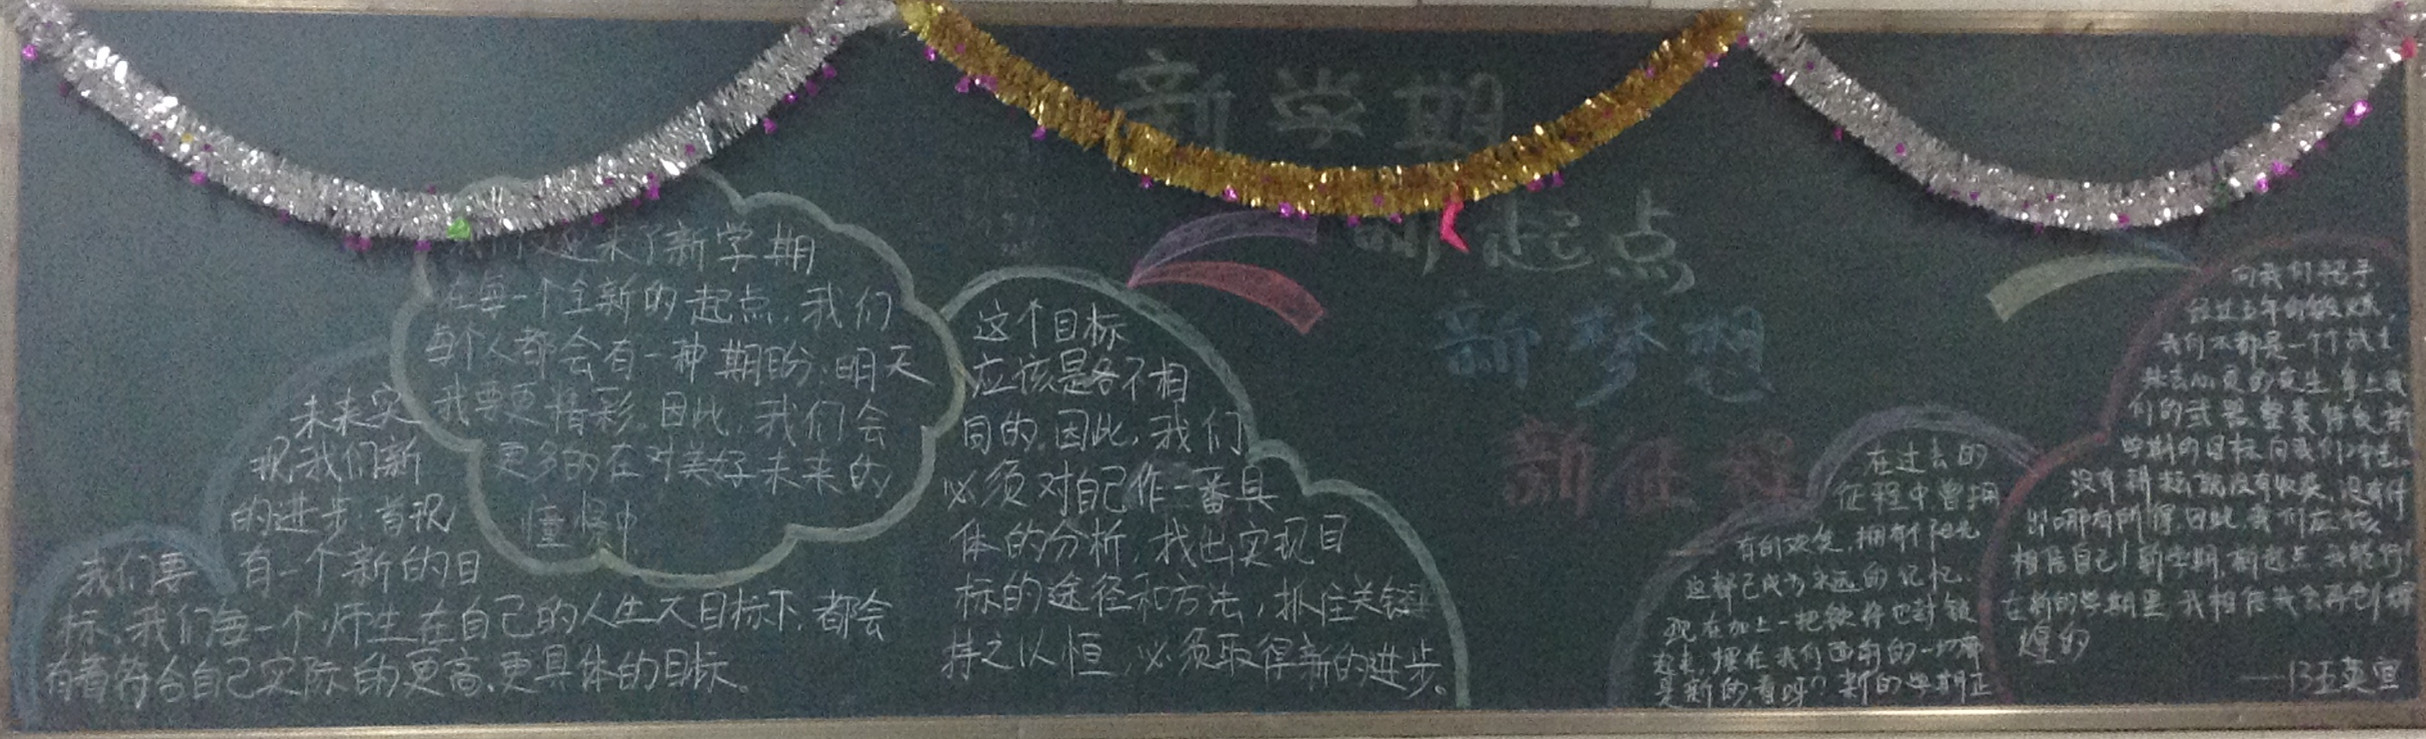 新学期
新起点
新梦想
新征程
我们又迎来了新学期
在每一个全新的起点,我们
每个人都会有一种期盼:明天
我要更精彩。因此,我们会
更多的在对美好未来的
憧憬中
未来实
现我们新
的进步:首现
我们要有一个新的目
标,我们每一个师生在自己的人生大目标下,都会
有着符合自己实际的更高、更具体的目标。
这个目标
应该是各不相
同的。因此,我们
必须对自己作一番具
体的分析,找出实现目
标的途径和方法,抓住关键
持之以恒,必须取得新的进步。
在过去的
征程中曾拥
有的欢笑,拥有个阳光
这都已成为永远的记忆.
现在加上一把锁将它封锁
起来,摆在我们面前的一切都
是新的,看呀?新的学期正
向我们招手
经过五年的锻炼,
我们不都是一个个战士
拿上我
们的武器整装待发新
学期的目标向我们冲击。
没有耕耘就没有收获,没有付
出哪有所得,因此,我们应该
相信自己!新学期,新起点,我能行!
在新的学期里,我相信我会再创辉
煌的